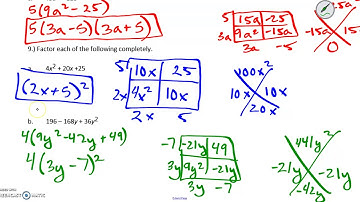 5(9a²-25)
5(3a-5)(3a+5)
5 15a -25
3a 9a² -15a
3a -5
-15a 15a
0
9.) Factor each of the following completely.
4x² + 20x +25
(2x+5)²
5 10x 25
2x 4x² 10x
2x 5
100x²
10x 10x
20x
b. 196 – 168y + 36y²
4(9y²-42y+49)
4(3y-7)²
-7 -21y 49
3y 9y² -21y
3y -7
441y²
-21y -21y
-42y